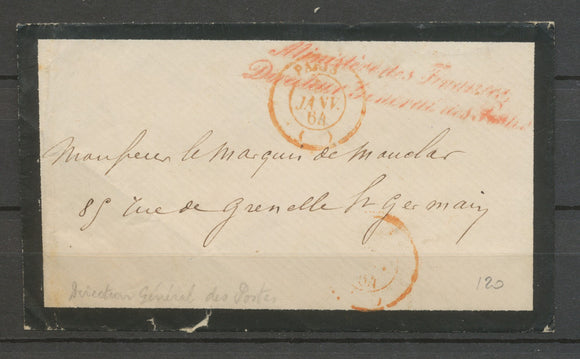 Ministère des Finances
Directeur Général des Postes
PARIS
JANV.
64
Monsieur le Marquis de Mauclar
85 rue de Grenelle St Germain
64
Direction Général des Postes
120